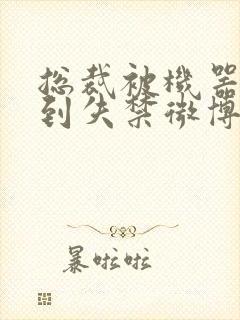 总裁被機器
到失禁微博
暴啦啦